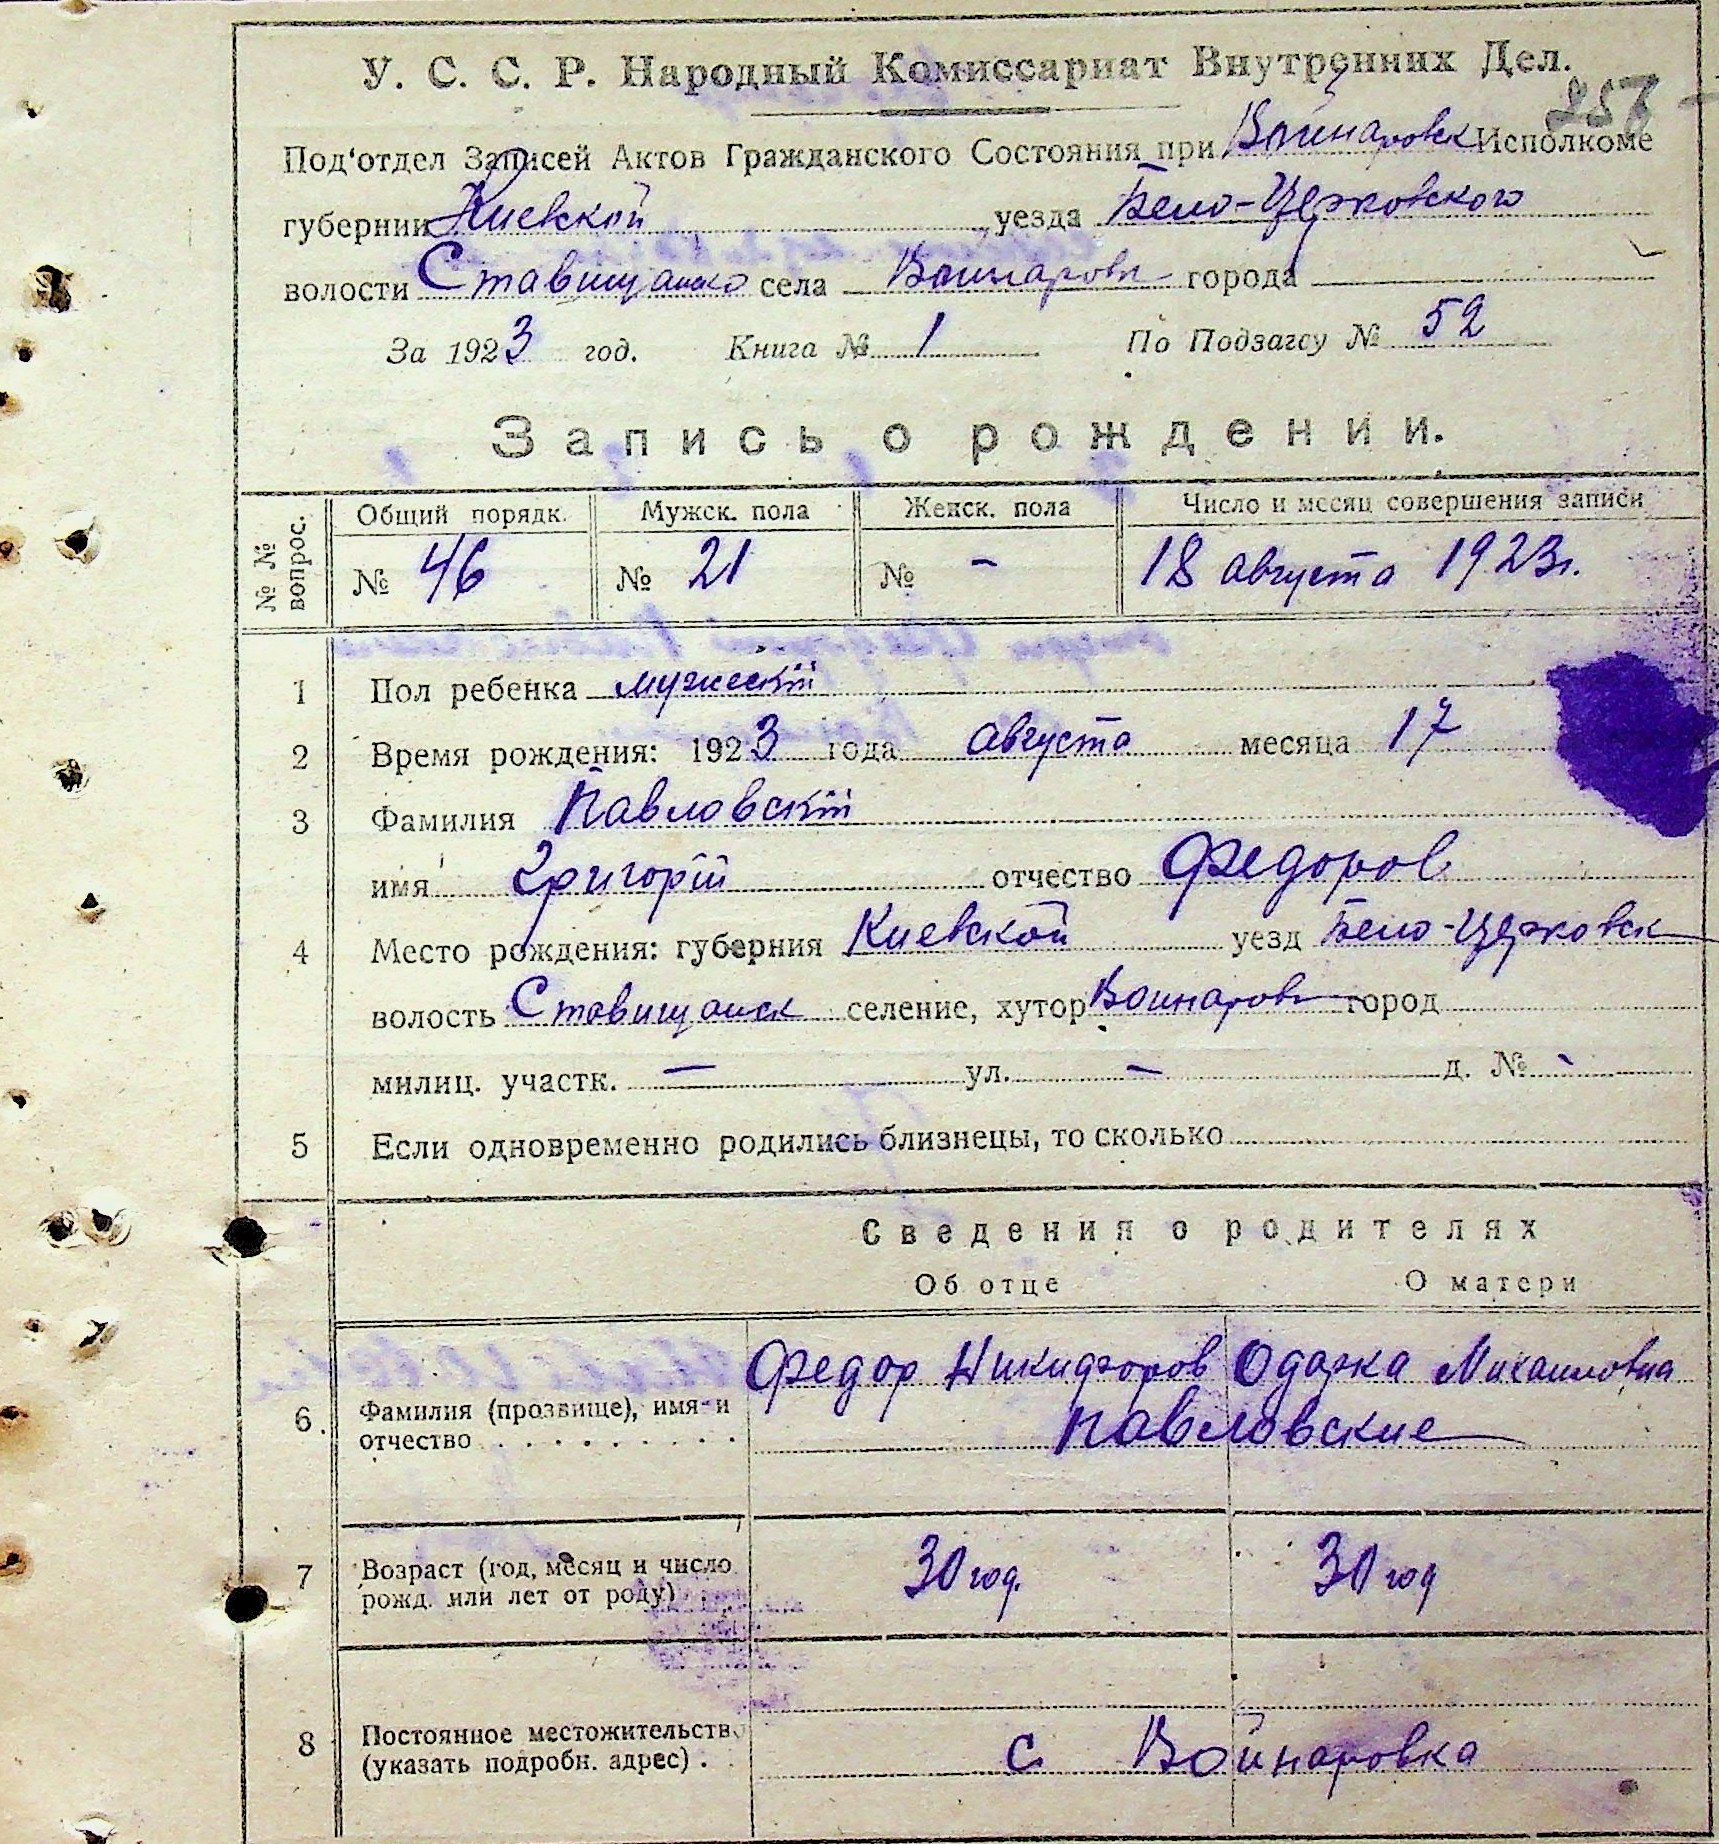 У. С. С. Р. Народный Комиссариат Внутренних Дел.
Под'отдел Записей Актов Гражданского Состояния при Войнаровск Исполкоме
губернии Киевской уезда Бело-Церковского
волости Ставищанско села Войнаровк города
За 1923 год. Книга № 1 По Подзагсу № 52
Запись о рождении.
№ № вопрос. Общий порядк. Мужск. пола Женск. пола Число и месяц совершения записи
№ 46 № 21 № - 18 августа 1923г.
1 Пол ребенка мужескій
2 Время рождения: 1923 года августа месяца 17
3 Фамилия Павловскій
имя Григорій отчество Федоров
4 Место рождения: губерния Киевской уезд Бело-Церковск
волость Ставищанск селение, хутор Войнаровк город
милиц. участк. — ул. — д. № -
5 Если одновременно родились близнецы, то сколько
Сведения о родителях
Об отце О матери
Федор Никифоров Одарка Михаиловна
6. Фамилия (прозвище), имя и
отчество Павловские
7 Возраст (год, месяц и число 30 год. 30 год
рожд. или лет от роду)
8 Постоянное местожительств
(указать подробн. адрес) . с Войнаровка